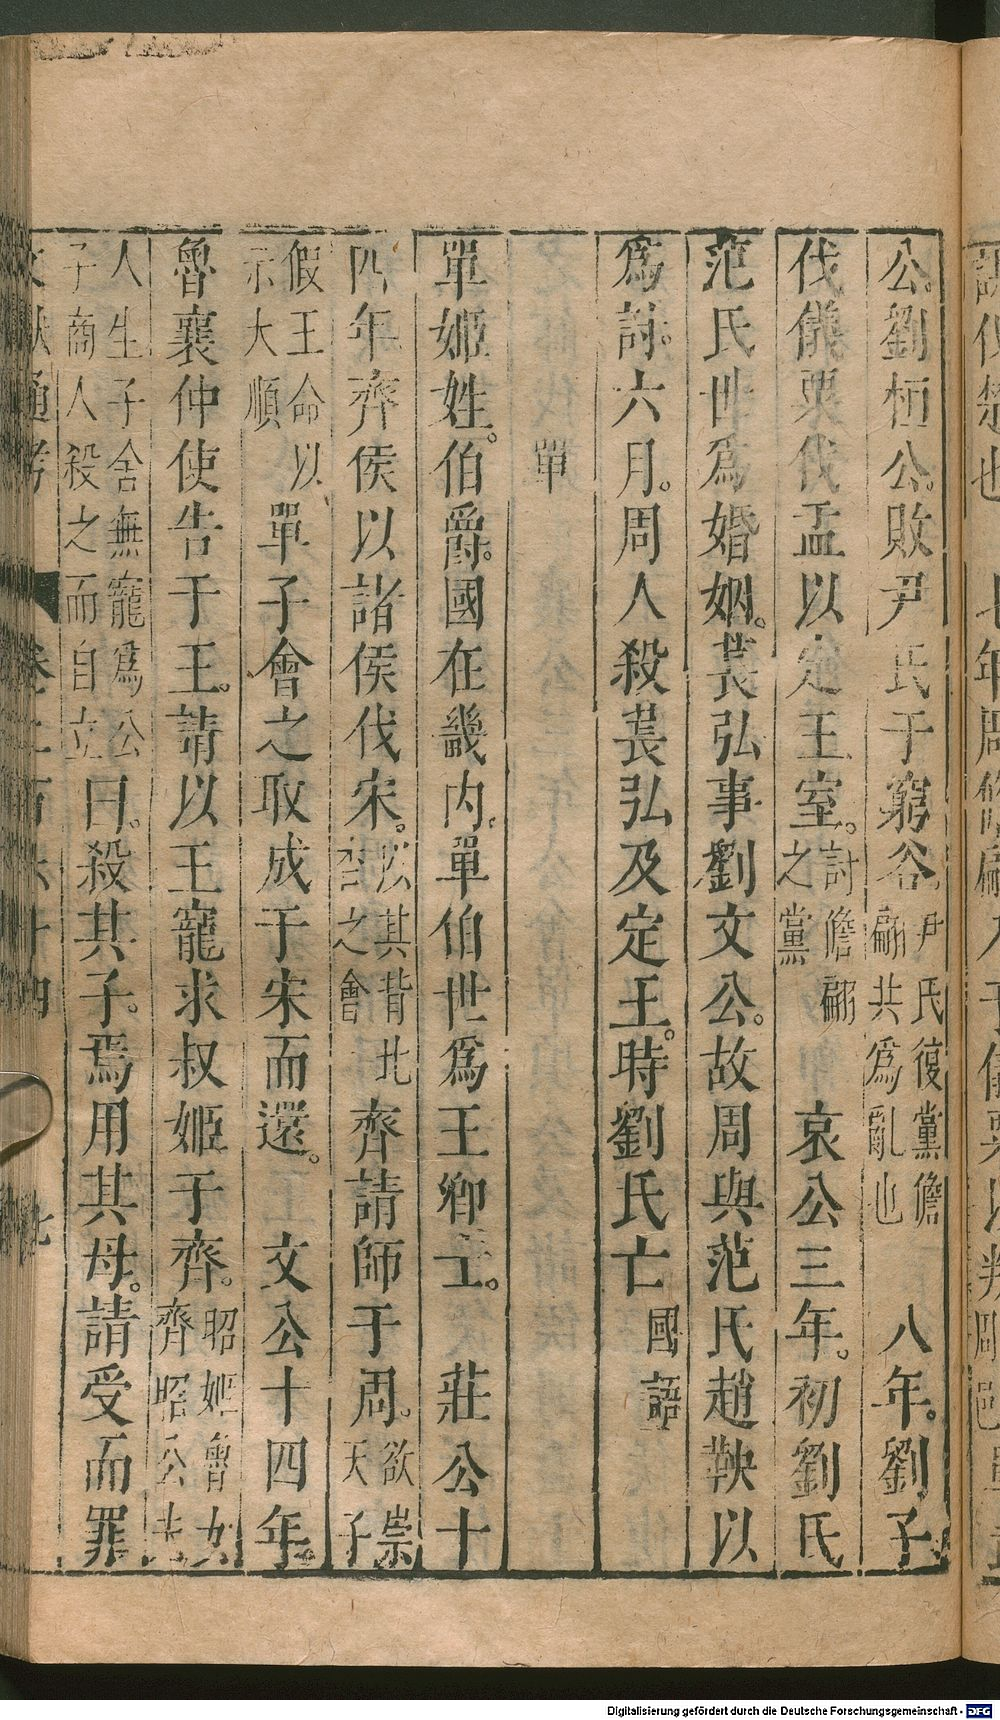 公。劉桓公。敗尹氏于窮谷。尹氏復黨儋翩共爲亂也 八年。劉子
伐儀栗伐盂以定王室。討儋翩之黨 哀公三年。初劉氏
范氏世爲婚姻。萇弘事劉文公。故周與范氏趙鞅以
爲討。六月。周人殺萇弘及定王。時劉氏亡 國語
單
單姬姓。伯爵。國在畿內。單伯世爲王卿士。 莊公十
四年齊侯以諸侯伐宋。以其背北杏之會 齊請師于周。欲崇天子
假王命以示大順 單子會之取成于宋而還。 文公十四年。
魯襄仲使告于王。請以王寵求叔姬于齊。昭姬魯女齊昭公夫
人生子舍無寵爲公子商人殺之而自立 曰。殺其子。焉用其母。請受而罪
文獻通考 卷二百六十四 七
Digitalisierung gefördert durch die Deutsche Forschungsgemeinschaft - DFG